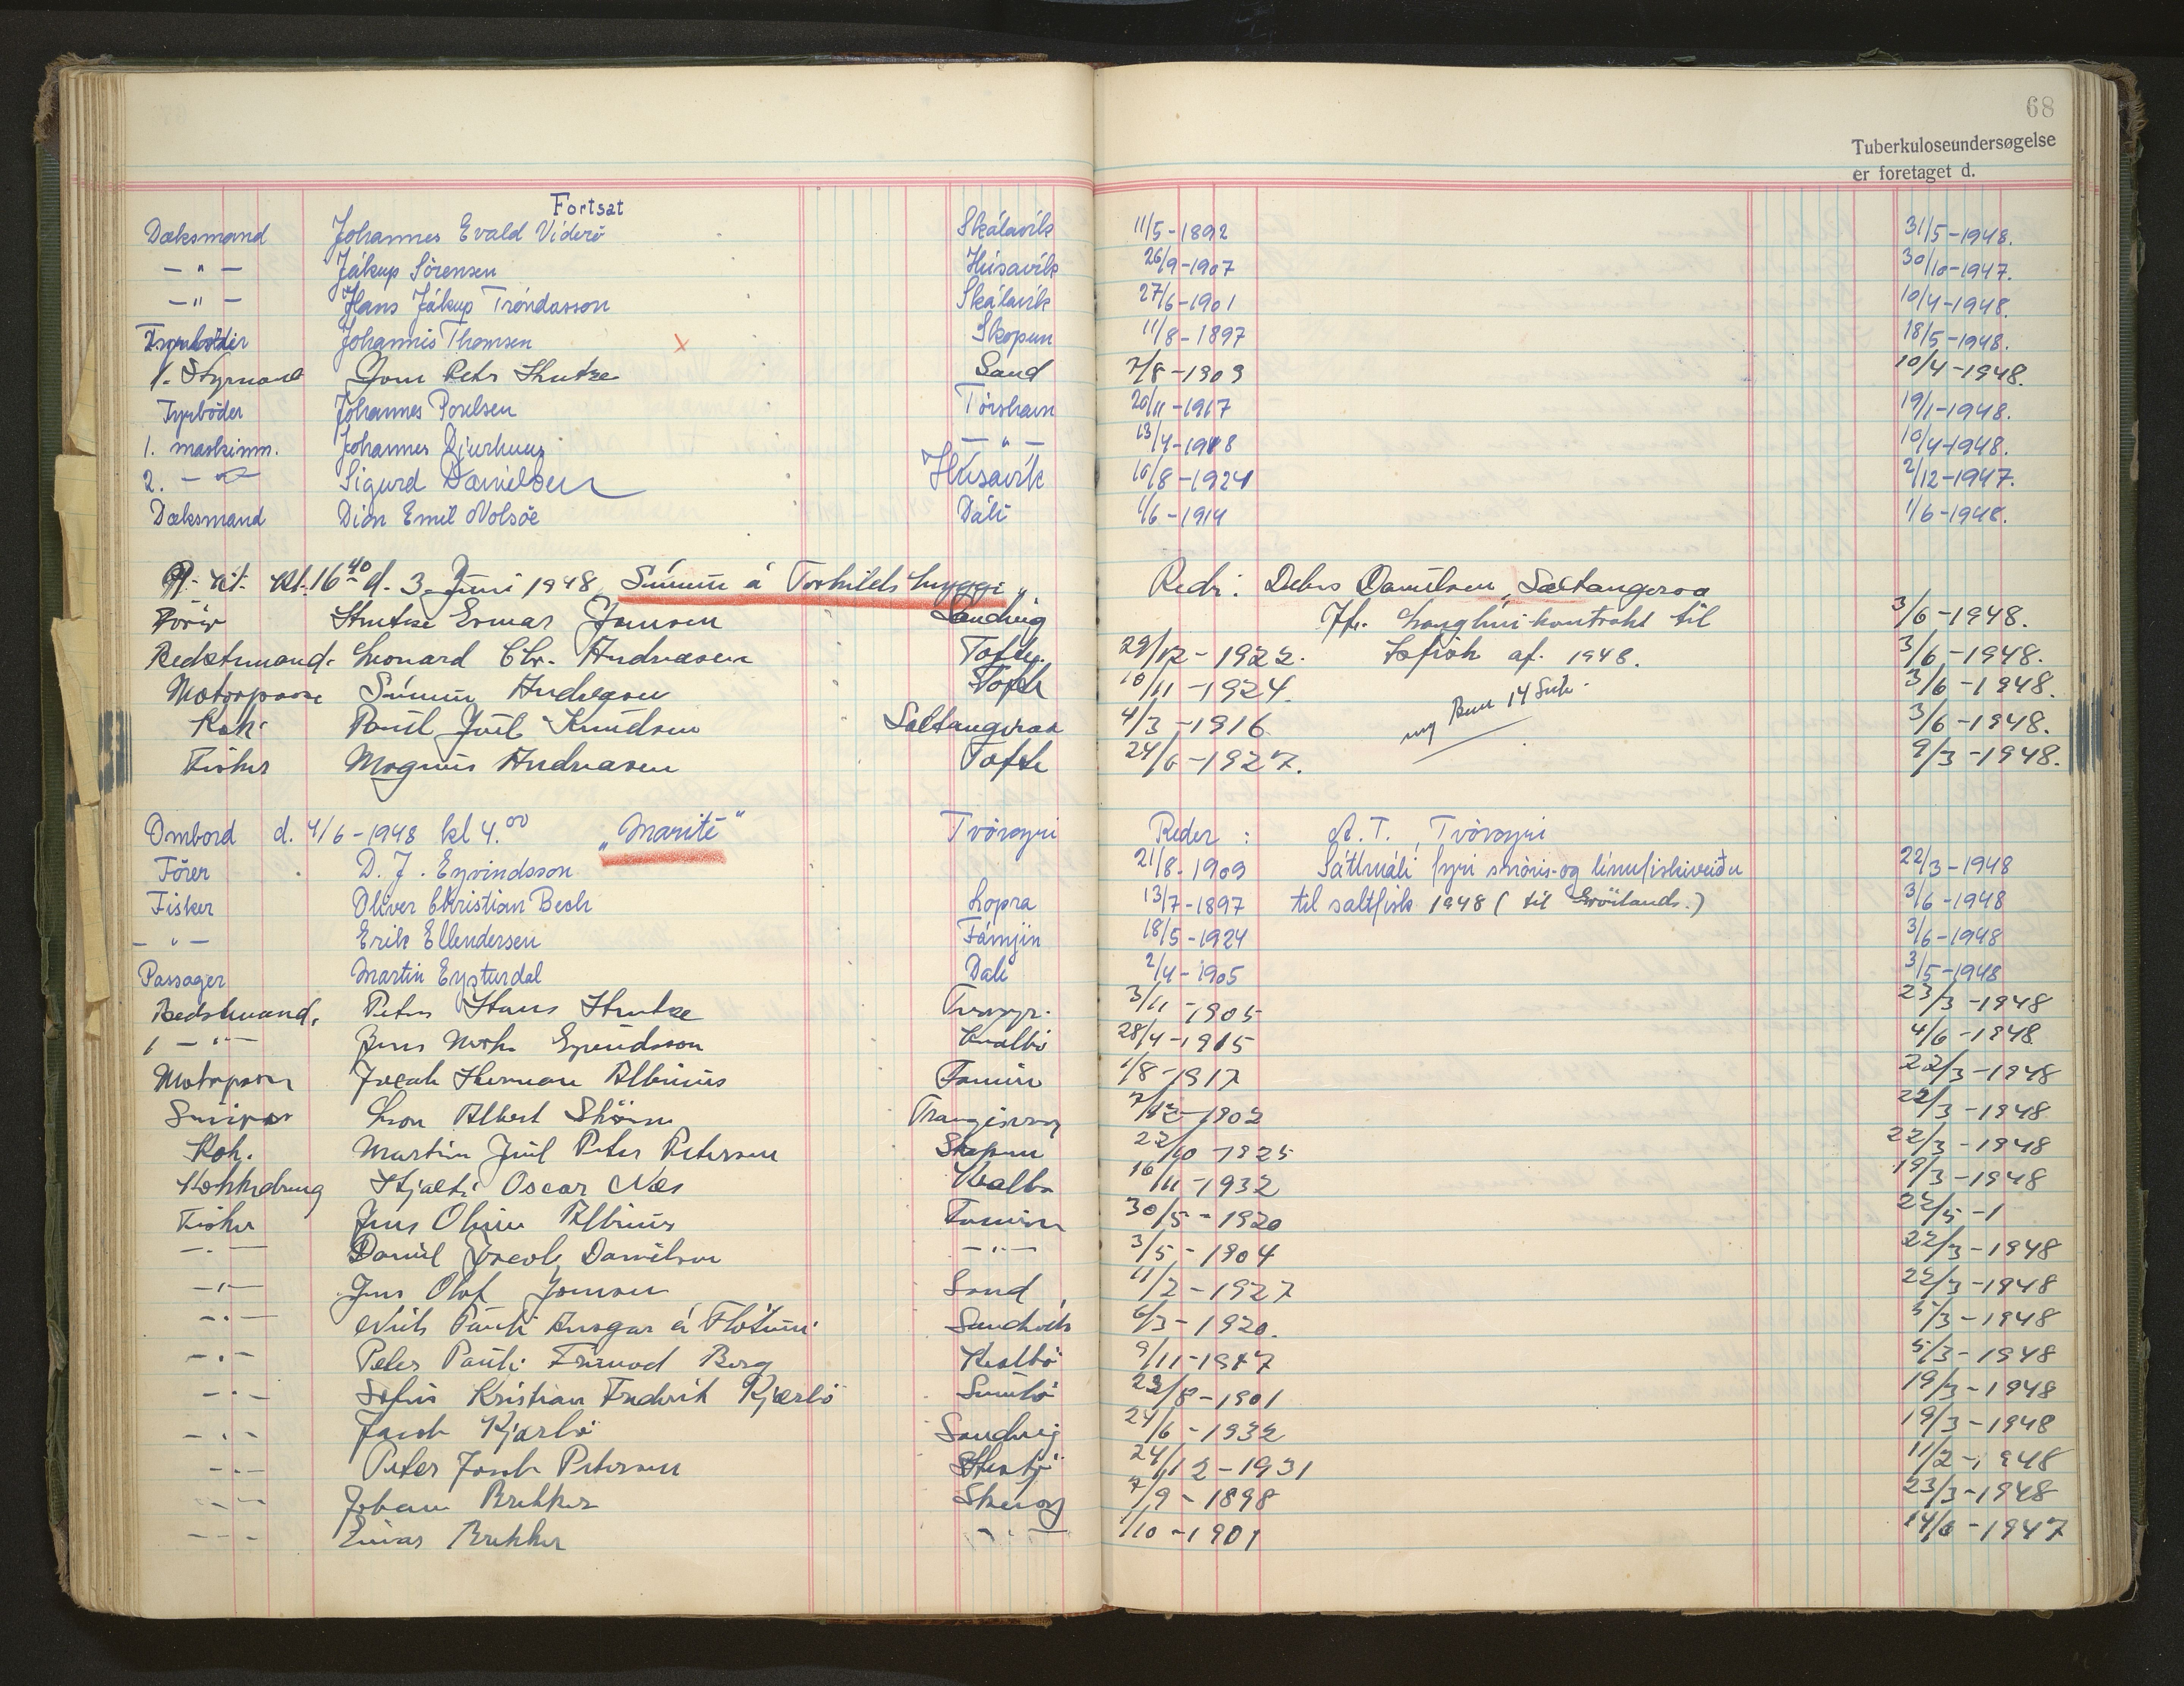 68
Tuberkuloseundersøgelse
er foretaget d.
Fortsat
Dæksmand Johannes Evald Viderö Skálavík 11/5-1892 31/5-1948.
- " - Jákup Sörensen Húsavík 26/9-1907 30/10-1947.
- " - Hans Jákup Tróndasson Skálavík 27/6-1901 10/4-1948.
Johannis Thomsen x Skopun 11/8-1897 18/5-1948.
1. Styrmand Sand 7/8-1909 10/4-1948.
Fyrböder Johannes Poulsen Tórshavn 20/11-1917 19/1-1948.
1. maskinm. Johannes Djurhuus - " - 13/4-1918 10/4-1948.
2. - " - Sigurd Danielsen Húsavík 10/8-1924 2/12-1947.
Dæksmand Dion Emil Volsöe Dali 1/6-1914 1/6-1948.
kl. 16 40 d. 3 Juni 1948 Símun á Torkilds hyggi " Redr: Debes Danielsen, Saltangeraa
Förer Ermar Jensen Sandvig Jfr. Langlini-kontrakt til 3/6-1948.
Bedstmand. Leonard Chr. Andreasen Tofte. 29/12-1922. Isfisk af. 1948. 3/6-1948.
Motorpasser Símun Andreasen Tofte 10/11-1924. 3/6-1948.
Kok. Poul Juul Knudsen Saltangeraa 4/3-1916 3/6-1948.
Fisker Magnus Andreasen Tofte 24/6-1927. 9/3-1948.
Ombord d. 4/6-1948 kl 4.00 "Marité" Tvöroyri Reder : A. T. Tvöroyri
Förer D. J. Eyvindsson 21/8-1909 Sáttmáli fyri snöris-og línufiskiveiðu 22/3-1948
Fisker Oliver Christian Bech Lopra 13/7-1897 til saltfisk 1948 ( til Grönlands.) 3/6-1948
- " - Erik Ellendersen Fámjin 18/5-1924 3/6-1948
Passager Martin Eysturdal Dali 2/4-1905 3/5-1948
Bedstmand. Peter Hans Tvöroyr. 3/11-1905 23/3-1948
1 - " - Jens Eyvindsson Kvalbö 28/4-1915 4/6-1948
Motorpasser Jacob Herman Albinus Famien 1/8-1917 22/3-1948
Albert Trangisvaag 7/12-1902 22/3-1948
Kok. Martin Juul Peter Petersen Skopun 22/10-1925 22/3-1948
Kokkedreng Hjalti Oscar Næs Kvalbø 16/11-1932 19/3-1948
Fisker Jens Oliver Albinus Famien 30/5-1920 22/5-1
- " - Daniel Jacob Danielsen - " - 3/5-1904 22/3-1948
- " - Jens Olaf Joensen Sand 11/2-1927 22/3-1948
- " - Niels Pauli Ansgar á Flötum Sandvík 6/3-1920. 5/3-1948
- " - Peter Pauli Berg Kvalbö 9/11-1917 5/3-1948
- " - Sofus Kristian Fredrik Kjærbö Sumbö 23/8-1901 19/3-1948
- " - Jacob Kjærbö Sandvig 24/6-1932 19/3-1948
- " - Peter Jacob Petersen 24/12-1931 11/2-1948
- " - Johan Brekker 7/9-1898 23/3-1948
- " - Einar Brekker - " - 1/10-1901 14/6-1947